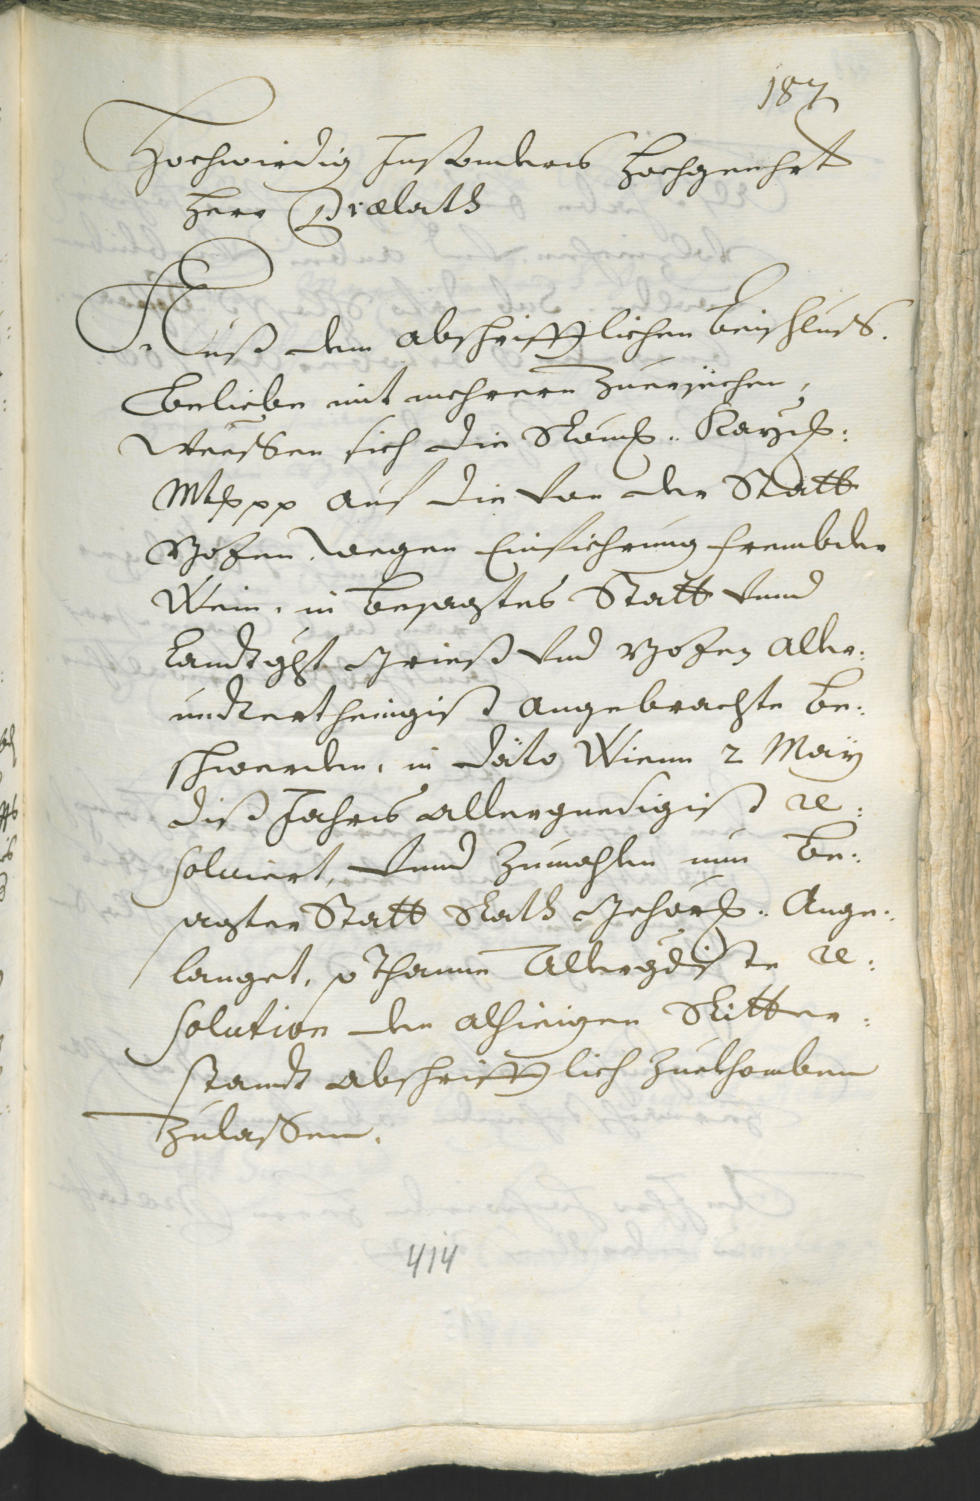 187
Hochwirdig Insonders Hochgeehrt
Herr Prælath
Auß dem abschrifftlichen Beischluß.
Beliebe mit mehrern zuersechen,
Wessen sich die Röm: Kayß:
Mt: ppp auf die von der Statt
Bozen wegen Einfiehrung frembder
Wein, in besagtes Statt vnnd
Landtght Grieß vnd Bozen aller:
undterthenigist angebrachte Be:
schwerden, in dato Wienn 2 May
diß Jahrs allergnedigist re:
solviert, Vnnd zumahlen nun be:
sagter Statt Rath gehors: Ange:
langet, sothanne Allergdiste re:
solution den alhieigen Ritter:
standt abschrifftlich zuekhomben
zulassen.
414